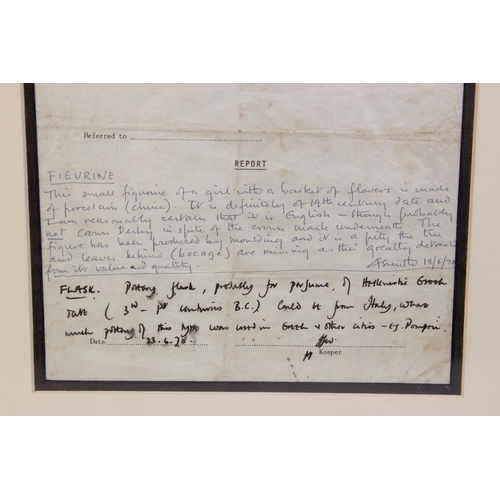 Referred to
REPORT
FIGURINE.
This small figurine of a girl with a basket of flowers is made
of porcelain (china). It is definitely of 19th century date and
I am reasonably certain that it is English – though probably
not Crown Derby in spite of the crown mark underneath. The
figure has been produced by moulding and it is a pity the tree
and leaves behind (bocage) are missing as this greatly detracts
from its value and quality.
FLASK. Pottery flask, probably for perfume, of Hellenistic Greek
date (3rd – 1st centuries B.C.) Could be from Italy, where
much pottery of this type was used in Greek & other cities – e.g. Pompeii.
Date 23.6.70.
Keeper